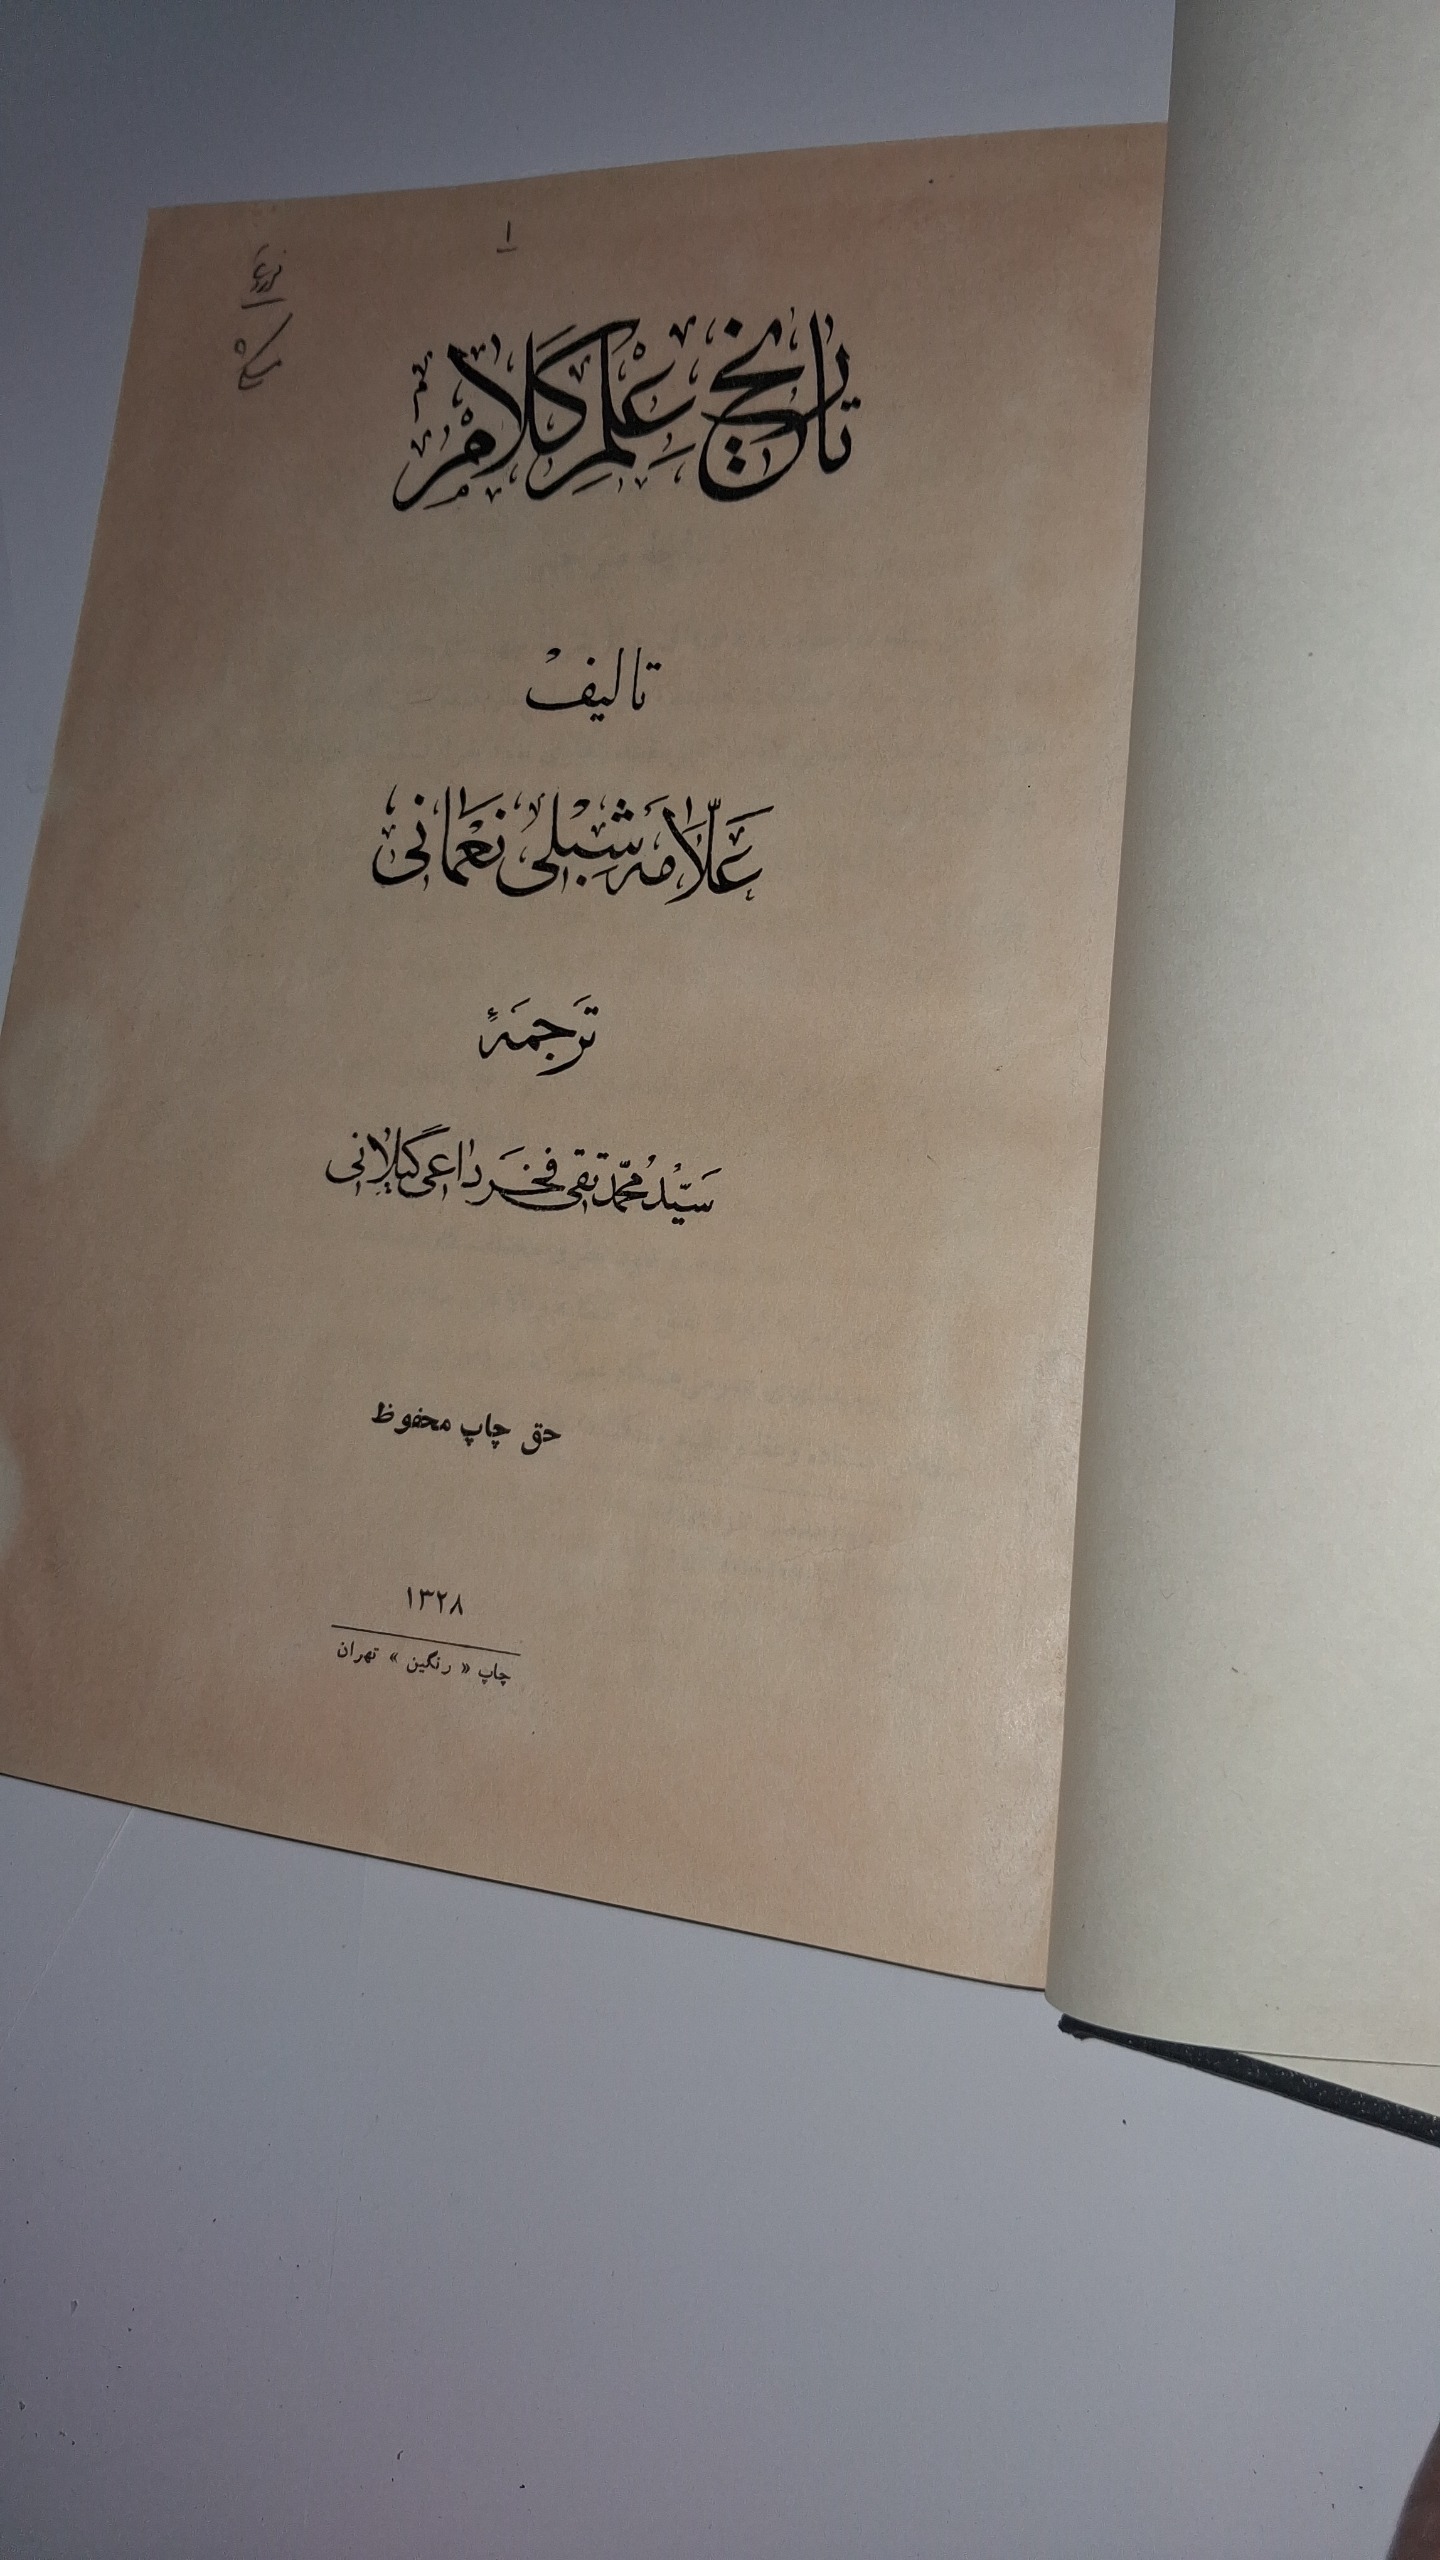 ۱
تاریخ عِلمِ کَلامْ
تالیفْ
عَلّامَه شِبْلی نُعْمانی
تَرجمَهٔ
سَیّدْ مُحمّد تَقی فَخر داعی گیلانی
حق چاپ محفوظ
۱۳۲۸
چاپ « رنگین » تهران